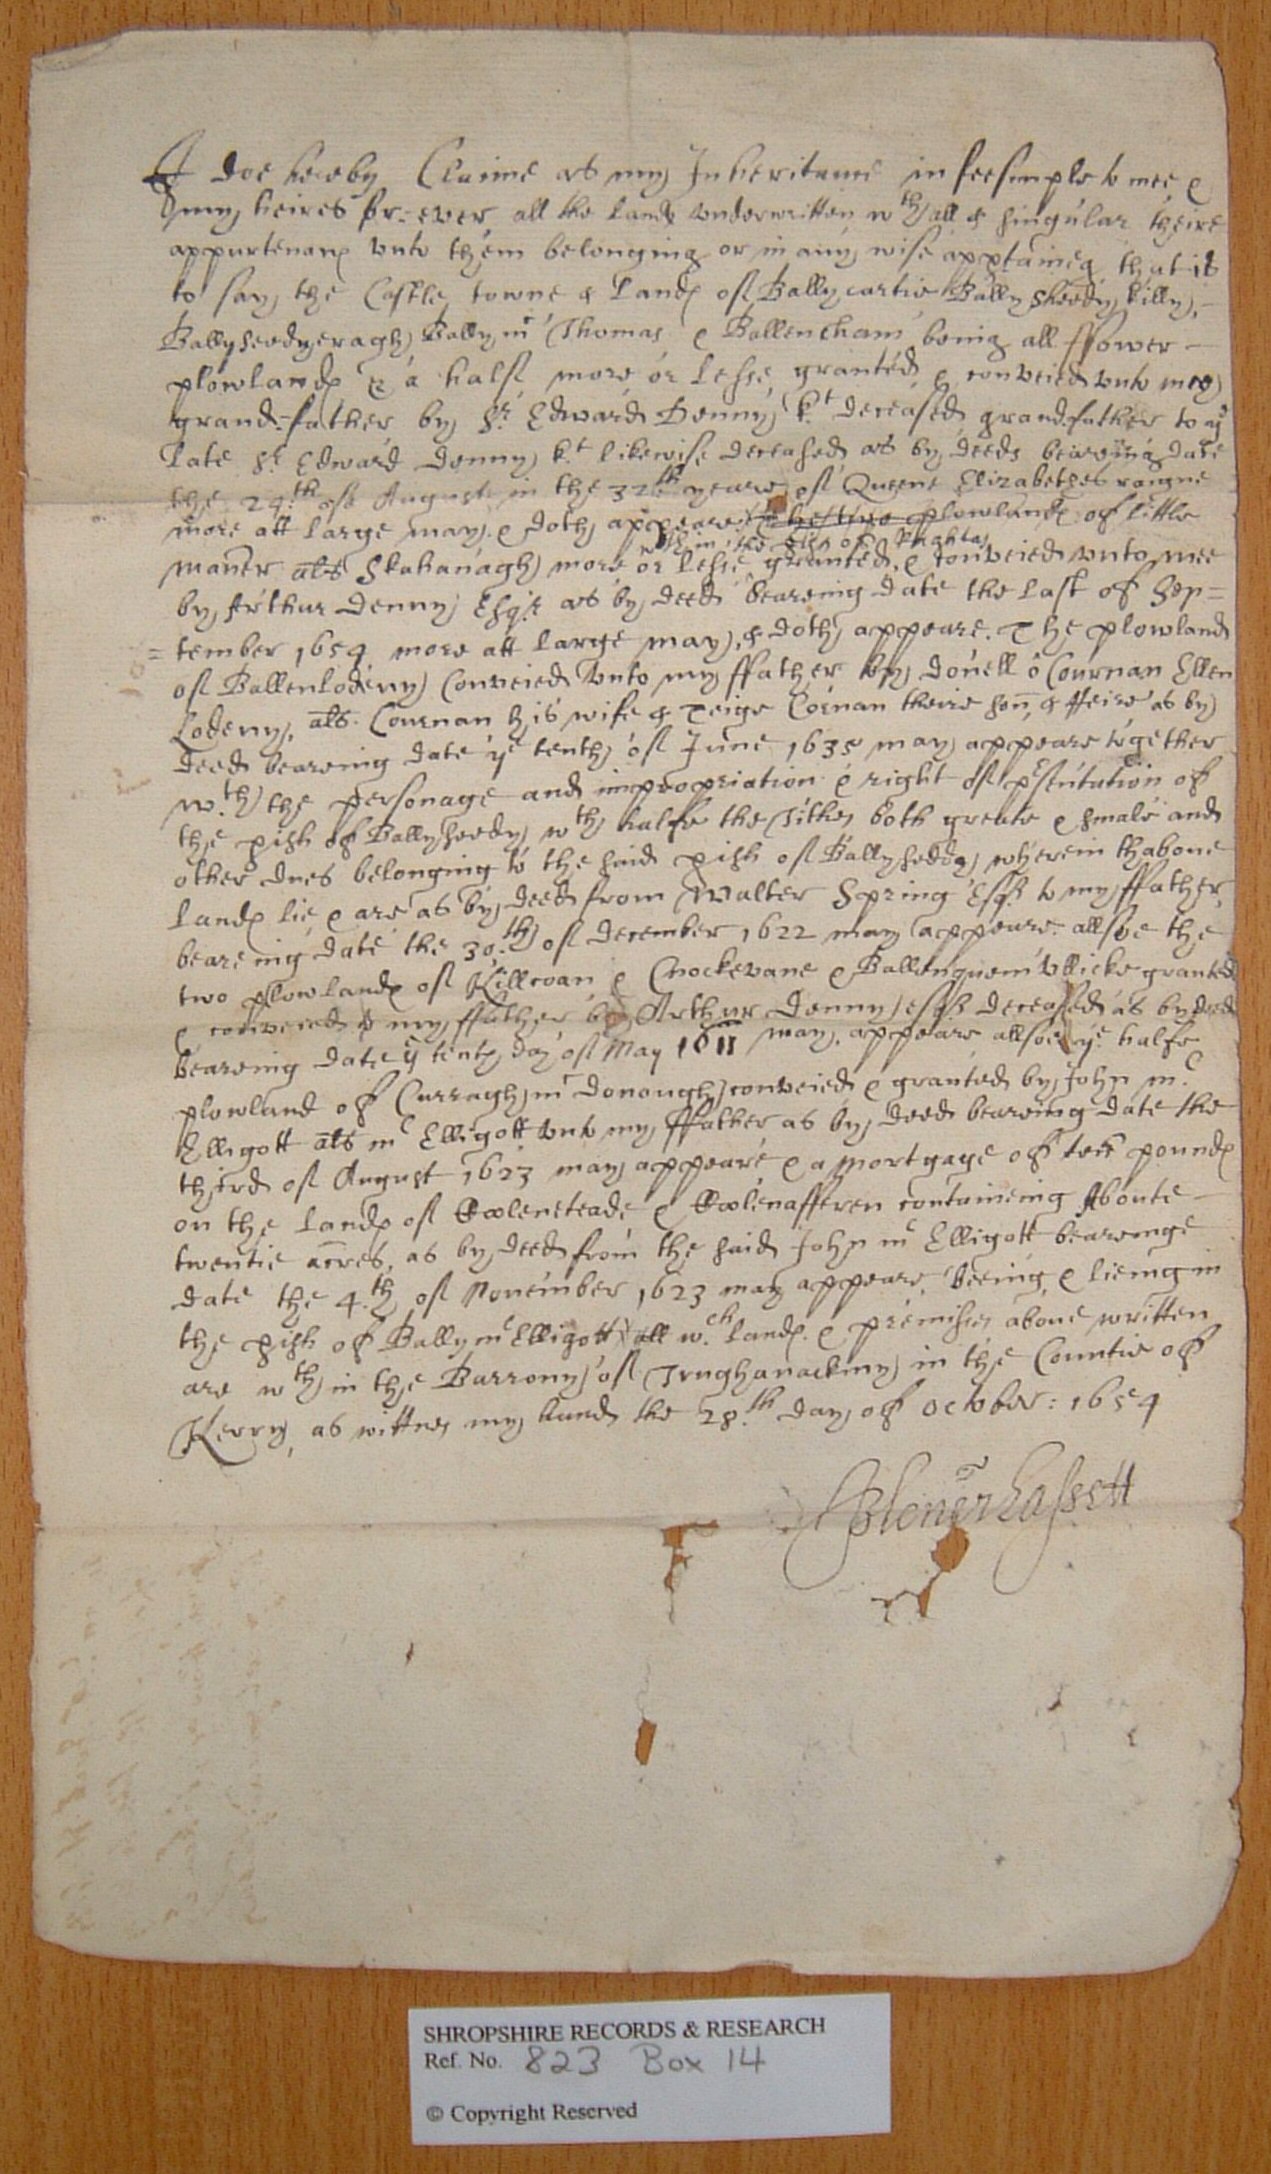 I doe hereby Claime as my Inheritance in feesimple to mee &
my heires for: ever all the lands underwritten wth all & singular theire
appurtenances unto them belonging or in any wise apptaineg that is
to say the Castle towne & lands of Ballycartie Ballysheedy killy,
Ballyseedyeragh Bally mc Thomas & Ballencham being all ffower
plowlands & a half more or lesse granted & conveied unto mey
grand-father by Sr Edward Denny kt deceased grandfather to ye
late Sr Edward Denny kt likewise deceased as by deeds beareing date
the 24th of August in the 32th yeare of Queene Elizabethes raigne
more att large may & doth appeare the two plowlands of little
wth in the pish of
maner als Skahanagh more or lesse granted & conveied unto mee
by Arthur Denny Esqr as by deed beareing date the last of Sep=
=tember 1654 more att large may & doth appeare. The plowland
of Ballenlodeny Conveied unto my ffather by Donell o Cournan Ellen
Lodeny, als Cournan his wife & Teige Cornan theire son & Heire as by
deed beareing date ye tenth of June 1635 may appeare together
wth the personage and impropriation & right of psentation of
the pish of Ballyseedy wth halfe the Tithes both greate & smale and
other dues belonging to the said pish of Ballyseedy wherein thabove
lands lie & are as by deed from Walter Spring Esqr to my ffather
beareing date the 30th of December 1622 may appeare allsoe the
two plowlands of Killcoan & Cnockevane & Ullicke granted
& conveied to my ffather by Arthur Denny esqr deceased as by deed
beareing date ye tenth day of May 1611 may appeare allsoe ye halfe
plowland of Curragh mc Donough conveied & granted by John mc
Elligott als mc Elligott unto my ffather as by deed beareing date the
third of August 1623 may appeare & a mortgage of ten pounds
on the lands of & containeing Aboute
twentie acres, as by deed from the said John mc Elligott beareinge
date the 4th of November 1623 may appeare, beeing & lieing in
the pish of Bally mc Elligott, all wch lands & premises above written
are wth in the Barrony of Trughanackmy in the Countie of
Kerry, as wittnes my hand the 28th day of October: 1654
Blenerhassett
SHROPSHIRE RECORDS & RESEARCH
Ref. No. 823 Box 14
© Copyright Reserved